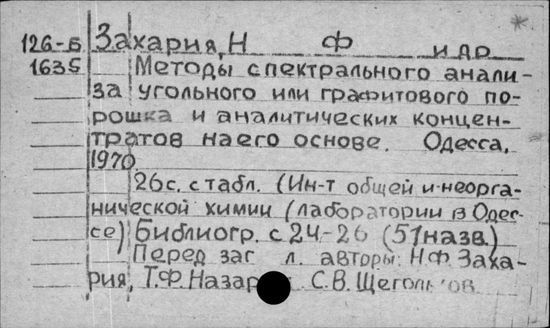 126-Б Захария, Н Ф и др
1635 Методы спектрального анали-
за угольного или графитового по-
рошка и аналитических концен-
тратов на его основе. Одесса,
1970
26с. с табл. (Ин-т общей и неорга-
нической химии (лаборатории в Одес-
се) Библиогр. с 24-26 (51 назв.)
Перед заг л. авторы: Н.Ф. Заха-
рия, Т.Ф. Назар С.В. Щегольков